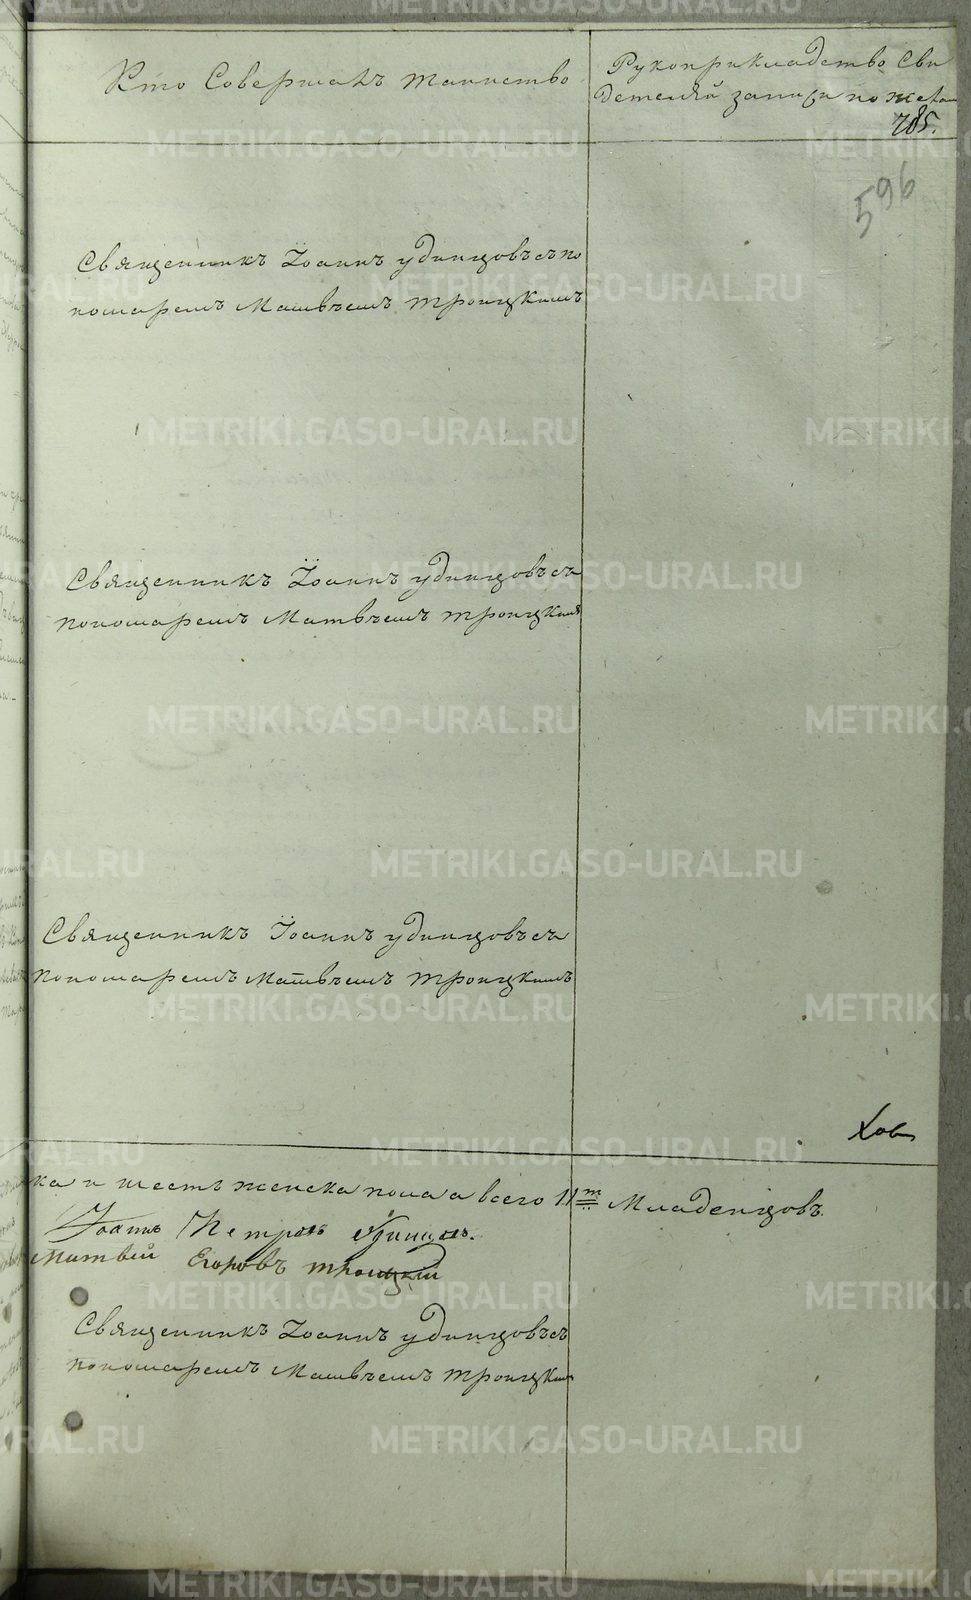 Кто Совершалъ таинство
Рукоприкладство Сви
детелей записи по желан
785.
596
Священникъ Іоаннъ удинцовъ съ по
номаремъ Матвѣемъ троицкимъ
Священникъ Іоаннъ удинцовъ съ
пономаремъ Матвѣемъ троицкимъ
Священникъ Іоаннъ удинцовъ съ
пономаремъ Матвѣемъ троицкимъ
ка и шесть женска пола а всего 11ть Младенцовъ.
Іоаннъ Петровъ Удинцовъ.
Матвѣй Егоровъ троицкій
Священникъ Іоаннъ удинцовъ съ
пономаремъ Матвѣемъ троицкимъ
METRIKI.GASO-URAL.RU